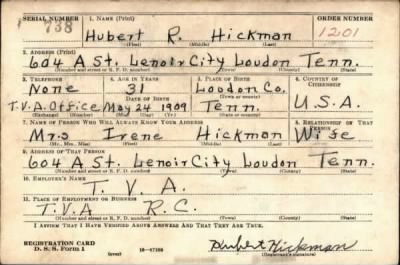 SERIAL NUMBER 1. NAME (Print) ORDER NUMBER
738 Hubert R. Hickman 1201
(First) (Middle) (Last)
2. ADDRESS (Print)
604 A St. Lenoir City Loudon Tenn.
(Number and street or R. F. D. number) (Town) (County) (State)
3. TELEPHONE 4. AGE IN YEARS 5. PLACE OF BIRTH 6. COUNTRY OF CITIZENSHIP
None 31 Loudon Co.
DATE OF BIRTH (Town or county)
T.V.A. Office May 24 1909 Tenn. U.S.A.
(Exchange) (Number) (Mo.) (Day) (Yr.) (State or country)
7. NAME OF PERSON WHO WILL ALWAYS KNOW YOUR ADDRESS 8. RELATIONSHIP OF THAT PERSON
Mrs Irene Hickman Wife
(Mr., Mrs., Miss) (First) (Middle) (Last)
9. ADDRESS OF THAT PERSON
604 A St. Lenoir City Loudon Tenn.
(Number and street or R. F. D. number) (Town) (County) (State)
10. EMPLOYER'S NAME
T. V. A.
11. PLACE OF EMPLOYMENT OR BUSINESS
T.V.A R.C.
(Number and street or R. F. D. number) (Town) (County) (State)
I AFFIRM THAT I HAVE VERIFIED ABOVE ANSWERS AND THAT THEY ARE TRUE.
REGISTRATION CARD
D. S. S. Form 1 (over) Hubert Hickman
(Registrant's signature)